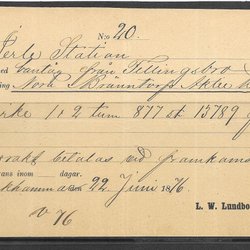 No: 20.
Perle Station
med bantåg från Fellingsbro
Nora & Bränntorp Aktie
1 2 tum 877 st. 13789
frakt betalas vid framkoms
rans inom dagar.
khammar 22 Juni 1876
L. W. Lundbo
№ 76